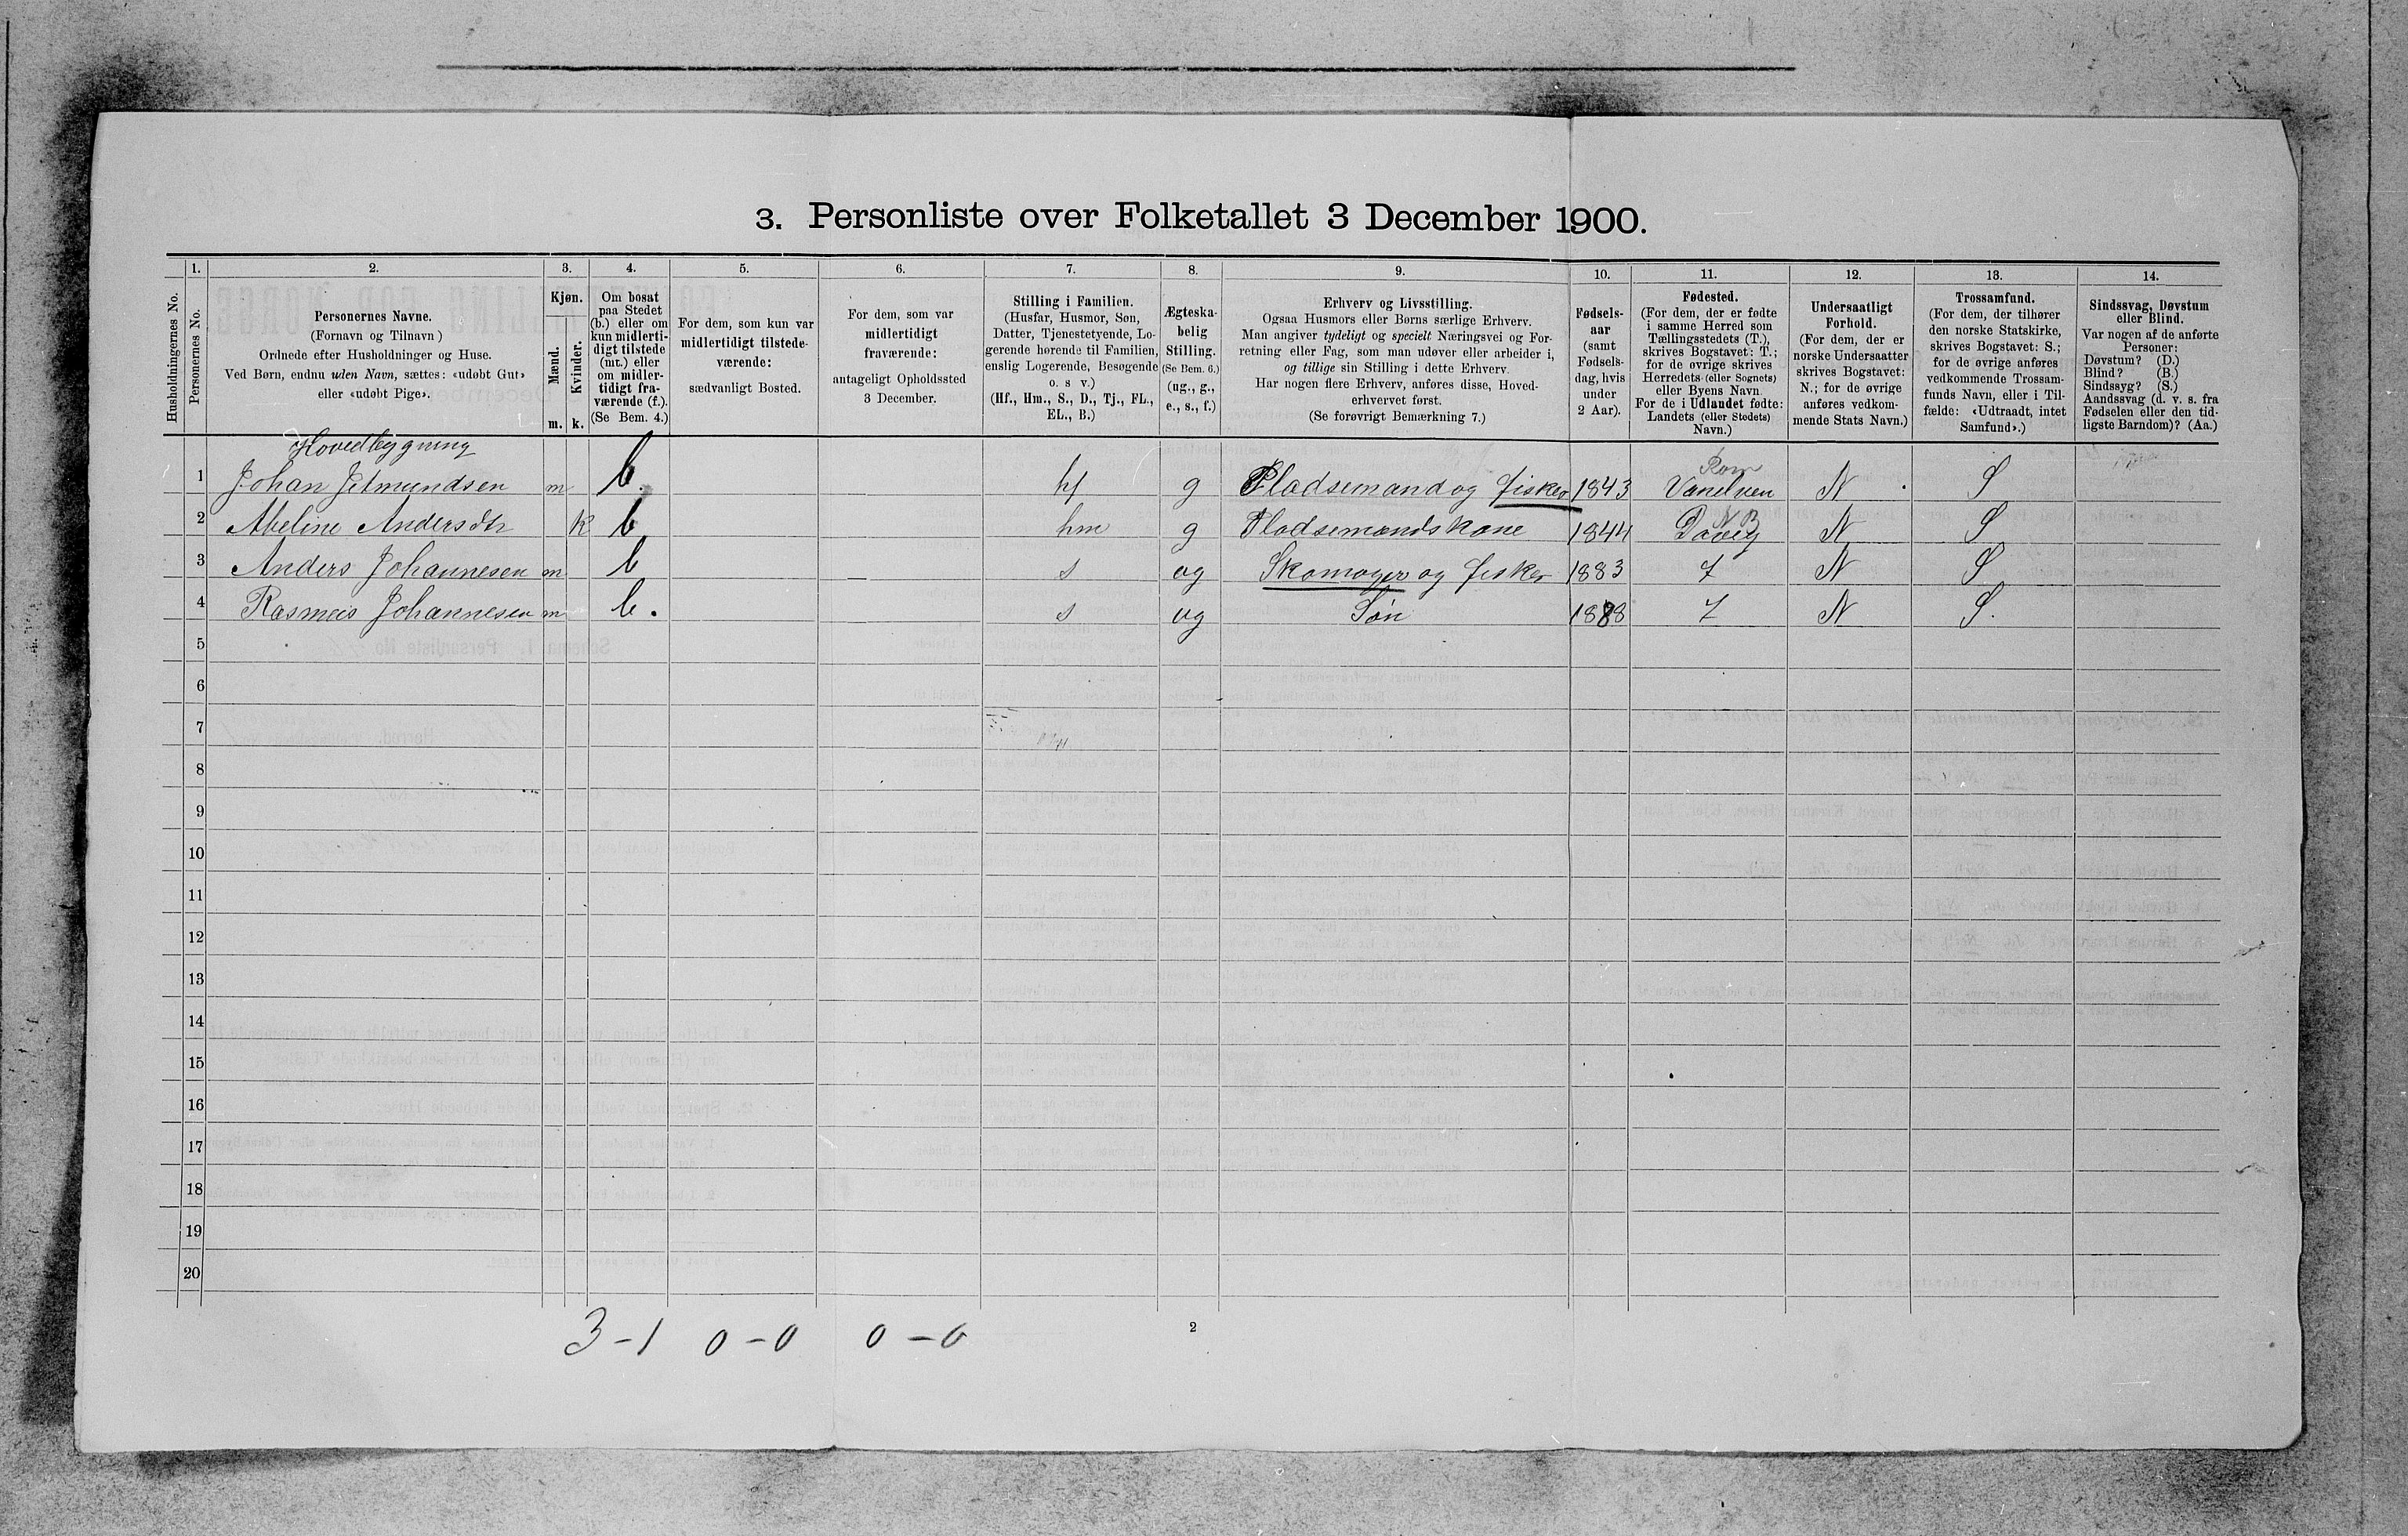 3. Personliste over Folketallet 3 December 1900.
1. 2. 3. 4. 5. 6. 7. 8. 9. 10. 11. 12. 13. 14.
Husholdningernes No.
Personernes No.
Personernes Navne.
(Fornavn og Tilnavn)
Ordnede efter Husholdninger og Huse.
Ved Børn, endnu uden Navn, sættes: «udøbt Gut»
eller «udøbt Pige».
Kjøn.
Mænd.
Kvinder.
m. k.
Om bosat
paa Stedet
(b.) eller om
kun midlerti-
digt tilstede
(mt.) eller
om midler-
tidigt fra-
værende (f.).
(Se Bem. 4.)
For dem, som kun var
midlertidigt tilstede-
værende:
sædvanligt Bosted.
For dem, som var
midlertidigt
fraværende:
antageligt Opholdssted
3 December.
Stilling i Familien.
(Husfar, Husmor, Søn,
Datter, Tjenestetyende, Lo-
gerende hørende til Familien,
enslig Logerende, Besøgende
o. s v.)
(Hf., Hm., S., D., Tj., FL.,
EL., B.)
Ægteska-
belig
Stilling.
(Se Bem. 6.)
(ug., g.,
e., s., f.)
Erhverv og Livsstilling.
Ogsaa Husmors eller Børns særlige Erhverv.
Man angiver tydeligt og specielt Næringsvei og For-
retning eller Fag, som man udøver eller arbeider i,
og tillige sin Stilling i dette Erhverv.
Har nogen flere Erhverv, anføres disse, Hoved-
erhvervet først.
(Se forøvrigt Bemærkning 7.)
Fødsels-
aar
(samt
Fødsels-
dag, hvis
under
2 Aar).
Fødested.
(For dem, der er fødte
i samme Herred som
Tællingsstedets (T.),
skrives Bogstavet: T.;
for de øvrige skrives
Herredets (eller Sognets)
eller Byens Navn.
For de i Udlandet fødte:
Landets (eller Stedets)
Navn.)
Undersaatligt
Forhold.
(For dem, der er
norske Undersaatter
skrives Bogstavet:
N.; for de øvrige
anføres vedkom-
mende Stats Navn.)
Trossamfund.
(For dem, der tilhører
den norske Statskirke,
skrives Bogstavet: S.;
for de øvrige anføres
vedkommende Trossam-
funds Navn, eller i Til-
fælde: «Udtraadt, intet
Samfund».)
Sindssvag, Døvstum
eller Blind.
Var nogen af de anførte
Personer:
Døvstum? (D.)
Blind? (B.)
Sindssyg? (S.)
Aandssvag (d. v. s. fra
Fødselen eller den tid-
ligste Barndom)? (Aa.)
Hovedbygning
Rom
1 Johan Jetmundsen m b. hf g Pladsemand og fisker 1843 Vanelven N S
N B
2 Abeline Andersdtr k b hm g Pladsemandskone 1844 Davig N S
3 Anders Johannesen m b s ug Skomager og fisker 1883 T N S
4 Rasmus Johannesen m b. s ug Søn 1888 T N S.
5
6
7
8
9
10
11
12
13
14
15
16
17
18
19
20
3 - 1 0 - 0 0 - 0
2